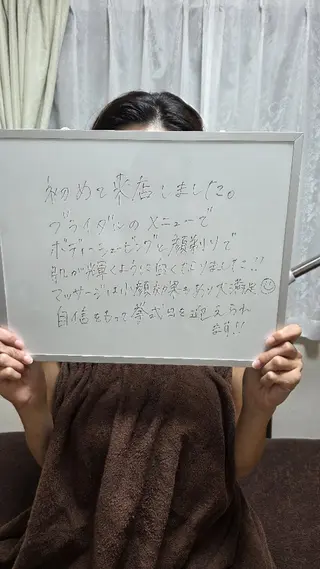 初めて来店しました。
ブライダルのメニューで
ボディーシェービングと顔剃りで
肌が輝くように白くなりました!!
マッサージは小顔効果もあり大満足☺
自信をもって挙式日を迎えられ
ます!!